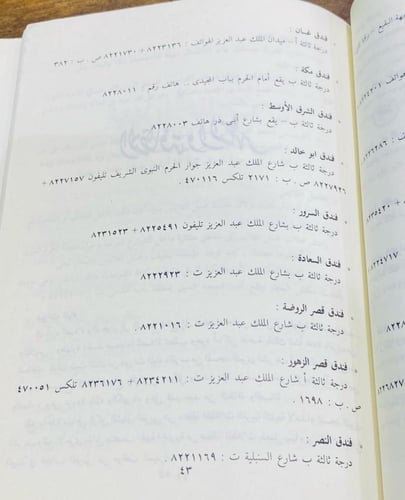 فندق غسان :
درجة ثالثة أ – ميدان الملك عبد العزيز الهواتف : ٨٢٢٣١٣٦ + ٨٢٢١٧٣٠ ص . ب : ٣٨٢
فندق مكة :
درجة ثالثة ب يقع أمام الحرم بباب المجيدى .. هاتف رقم ٨٢٢٨٠١١
فندق الشرق الأوسط :
درجة ثالثة ب – يقع بشارع أبى ذر هاتف ٨٢٢٨٠٠٣
فندق ابو خالد :
درجة ثالثة ب شارع الملك عبد العزيز جوار الحرم النبوى الشريف تليفون ٨٢٢٧١٥٧ +
٨٢٢٧٩٢٦ ص . ب : ٢١٧١ تلكس ٤٧٠١١٦ .
فندق السرور :
درجة ثالثة ب بشارع الملك عبد العزيز تليفون ٨٢٢٥٤٩١ + ٨٢٣١٥٢٣
فندق السعادة :
درجة ثالثة ب بشارع الملك عبد العزيز ت : ٨٢٢٢٩٢٣
فندق قصر الروضة :
درجة ثالثة ب شارع الملك عبد العزيز ت : ٨٢٢١٠١٦ .
فندق قصر الزهور :
درجة ثالثة أ شارع الملك عبد العزيز ت : ٨٢٣٤٢١١ + ٨٢٣٦١٧٦ تلكس ٤٧٠٠٥١
ص . ب : ١٦٩٨ .
فندق النصر :
درجة ثالثة ب شارع السنبلية ت : ٨٢٢١١٦٩ .
٤٣